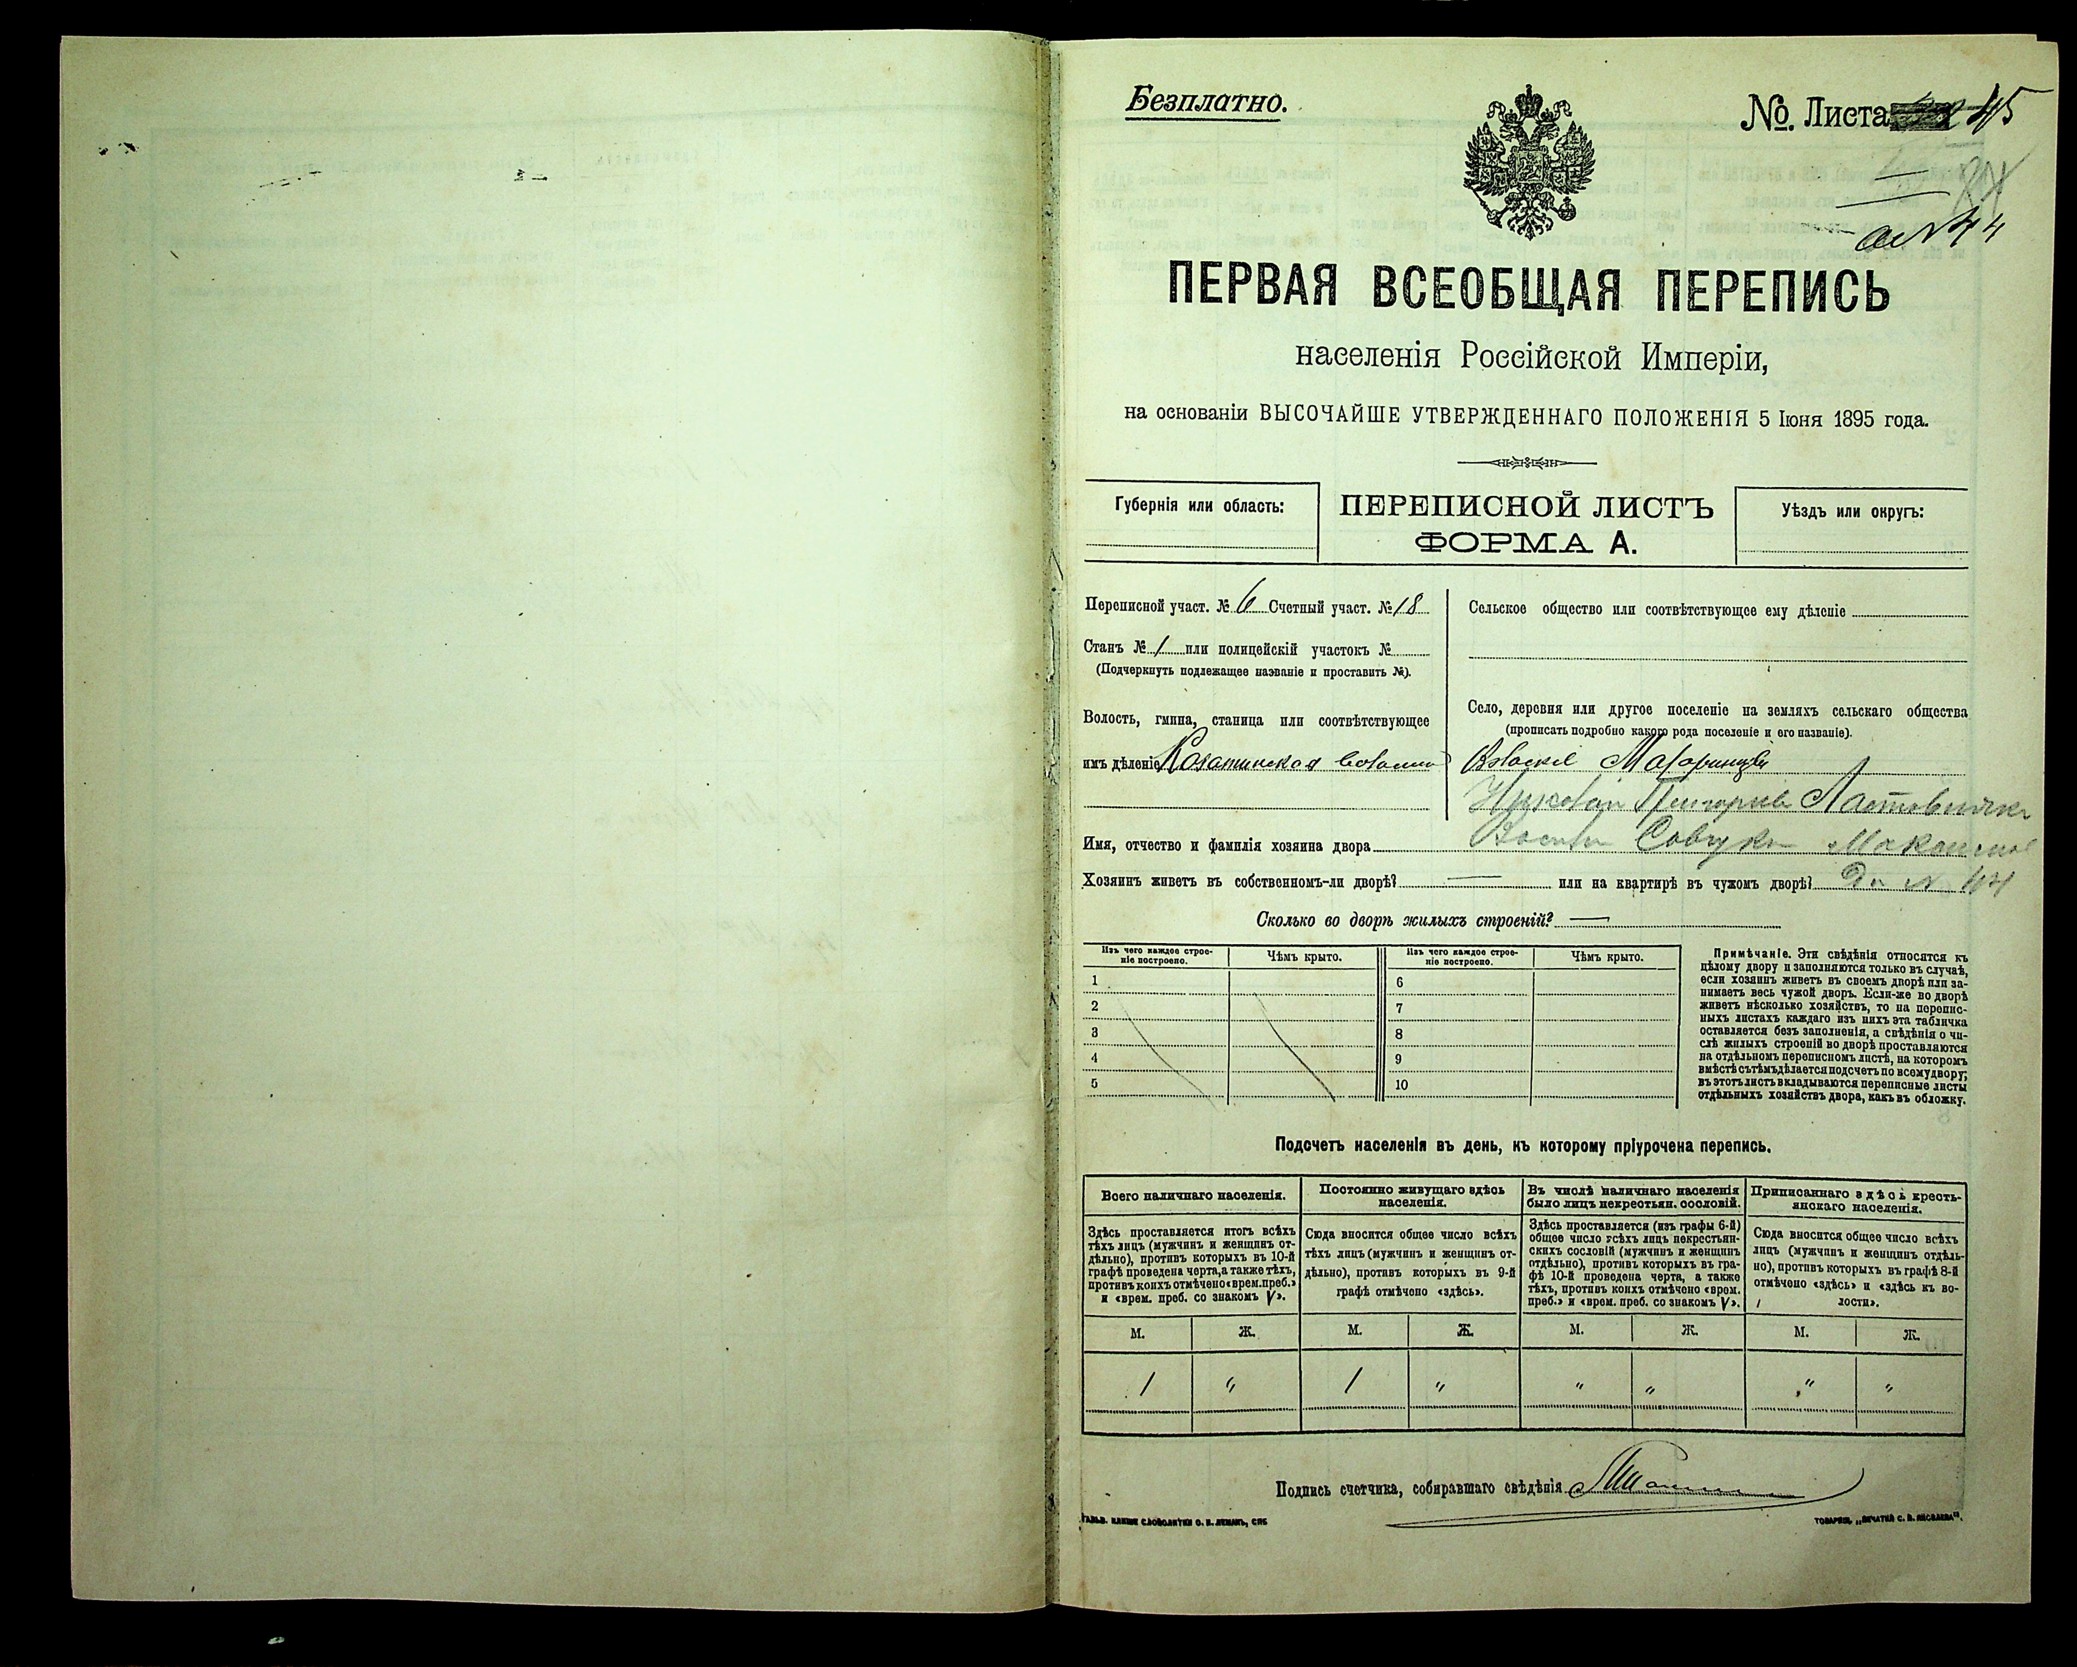 Безплатно.
№. Листа 45
ПЕРВАЯ ВСЕОБЩАЯ ПЕРЕПИСЬ
населенія Россійской Имперіи,
на основаніи ВЫСОЧАЙШЕ УТВЕРЖДЕННАГО ПОЛОЖЕНІЯ 5 Іюня 1895 года.
Губернія или область:
ПЕРЕПИСНОЙ ЛИСТЪ
ФОРМА А.
Уѣздъ или округъ:
Переписной участ. № 6 Счетный участ. № 18
Станъ № 1 или полицейскій участокъ №
(Подчеркнуть подлежащее названіе и проставить №).
Волость, гмина, станица или соотвѣтствующее
имъ дѣленіе
Сельское общество или соотвѣтствующее ему дѣленіе
Село, деревня или другое поселеніе на земляхъ сельскаго общества
(прописать подробно какого рода поселеніе и его названіе).
Имя, отчество и фамилія хозяина двора
Хозяинъ живетъ въ собственномъ-ли дворѣ? — или на квартирѣ въ чужомъ дворѣ?
Сколько во дворѣ жилыхъ строеній? —
Изъ чего каждое строе-
ніе построено.
Чѣмъ крыто.
1
2
3
4
5
Изъ чего каждое строе-
ніе построено.
Чѣмъ крыто.
6
7
8
9
10
Примѣчаніе. Эти свѣдѣнія относятся къ
цѣлому двору и заполняются только въ случаѣ,
если хозяинъ живетъ въ своемъ дворѣ или за-
нимаетъ весь чужой дворъ. Если-же во дворѣ
живетъ нѣсколько хозяйствъ, то на перепис-
ныхъ листахъ каждаго изъ нихъ эта табличка
оставляется безъ заполненія, а свѣдѣнія о чи-
слѣ жилыхъ строеній во дворѣ проставляются
на отдѣльномъ переписномъ листѣ, на которомъ
вмѣстѣ съ тѣмъ дѣлается подсчетъ по всему двору;
въ этотъ листъ вкладываются переписные листы
отдѣльныхъ хозяйствъ двора, какъ въ обложку.
Подсчетъ населенія въ день, къ которому пріурочена перепись.
Всего наличнаго населенія.
Здѣсь проставляется итогъ всѣхъ
тѣхъ лицъ (мужчинъ и женщинъ от-
дѣльно), противъ которыхъ въ 10-й
графѣ проведена черта, а также тѣхъ,
противъ коихъ отмѣчено «врем. преб.»
и «врем. преб. со знакомъ V».
Постоянно живущаго здѣсь
населенія.
Сюда вносится общее число всѣхъ
тѣхъ лицъ (мужчинъ и женщинъ от-
дѣльно), противъ которыхъ въ 9-й
графѣ отмѣчено «здѣсь».
Въ числѣ наличнаго населенія
было лицъ некрестьян. сословій.
Здѣсь проставляется (изъ графы 6-й)
общее число всѣхъ лицъ некрестьян-
скихъ сословій (мужчинъ и женщинъ
отдѣльно), противъ которыхъ въ гра-
фѣ 10-й проведена черта, а также
тѣхъ, противъ коихъ отмѣчено «врем.
преб.» и «врем. преб. со знакомъ V».
Приписаннаго здѣсь кресть-
янскаго населенія.
Сюда вносится общее число всѣхъ
лицъ (мужчинъ и женщинъ отдѣль-
но), противъ которыхъ въ графѣ 8-й
отмѣчено «здѣсь» и «здѣсь къ во-
лости».
М. Ж. М. Ж. М. Ж. М. Ж.
1 " 1 " " " " "
Подпись счетчика, собиравшаго свѣдѣнія